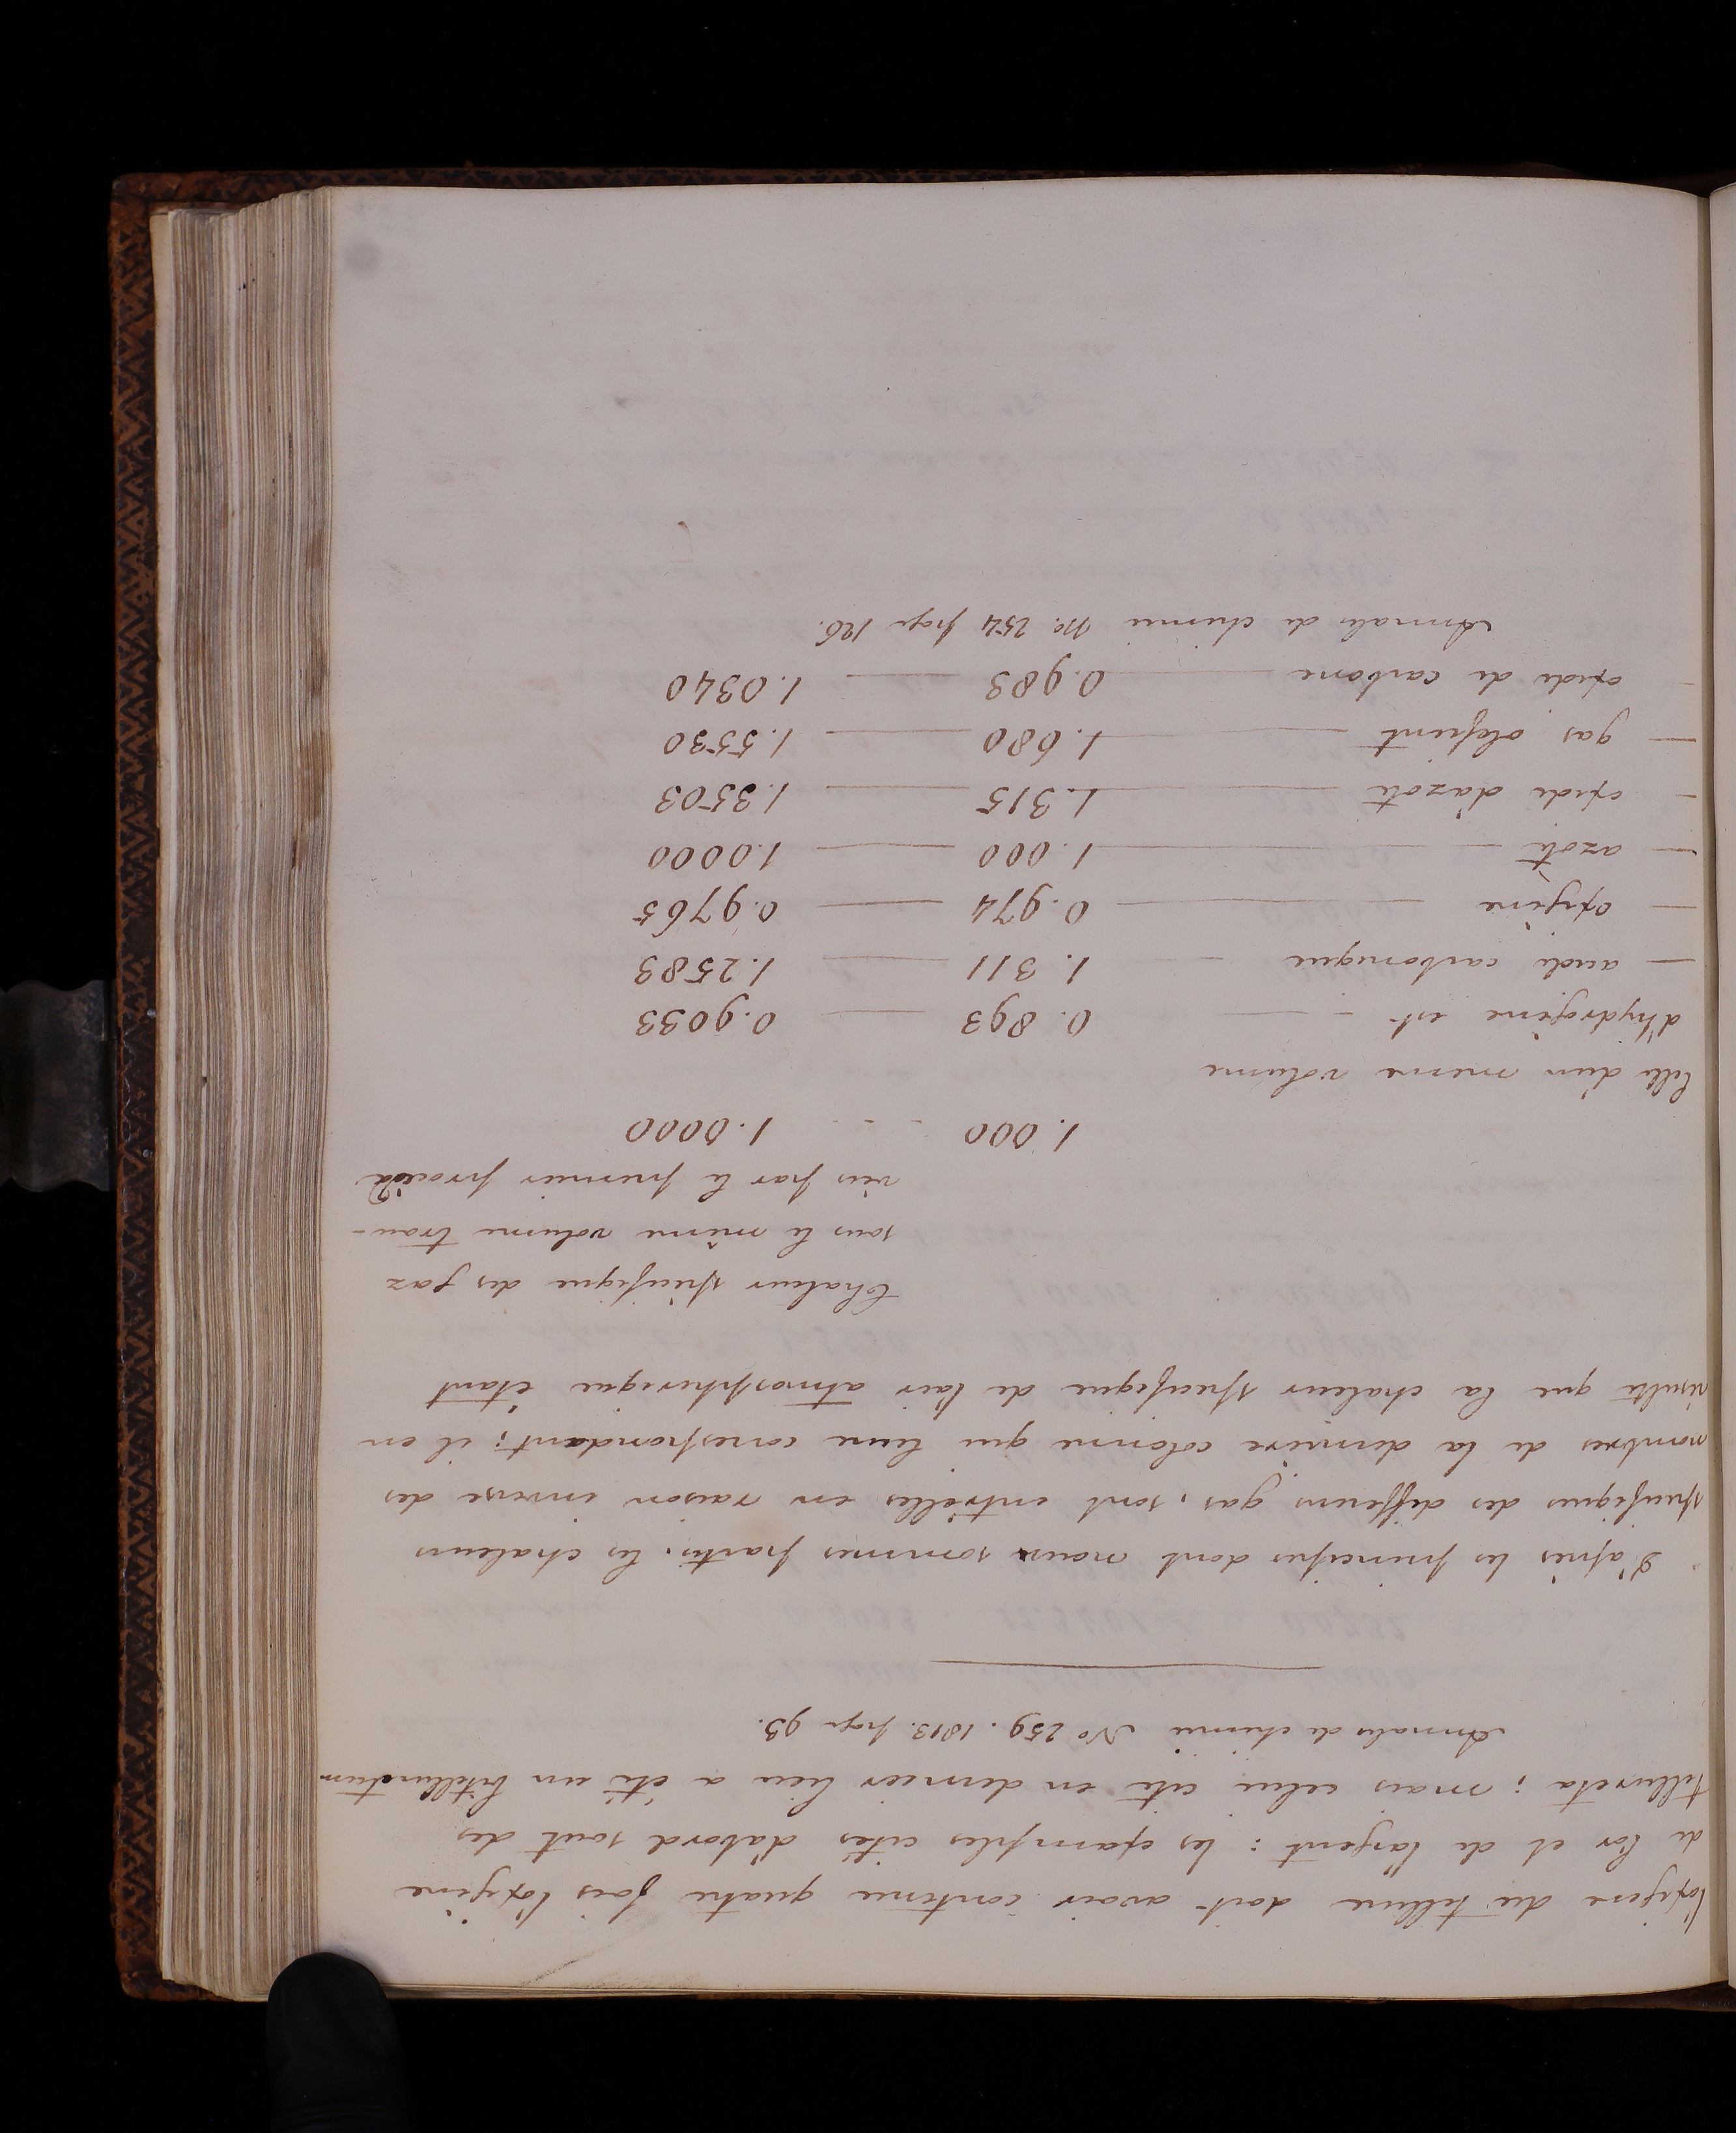 l'oxigene du tellure doit avoir contenu quatre fois l'oxigène
de l'or et de l'argent : les exemples cités d'abord sont des
tellureta ; mais celui cité en dernier lieu a été un bitelluretum
Annales de chimie No 259. 1813. page 93.
D'après les principes dont nous sommes partis, les chaleurs
specifiques des differens gas, sont entr'elles en raison inverse des
nombres de la dernière colonne qui leur correspondant; il en
résulte que la chaleur specifique de l'air atmospherique étant
Chaleur spécifique des gaz
sous le même volume trou-
vées par le premier procédé
1.000 - - 1.0000
Celle d'un meme volume
d'hydrogène est - — 0.893 — 0.9033
— acide carbonique - — 1.311 — 1.2583
— oxigène — 0.974 — 0.9765
— azote — 1.000 — 1.0000
— oxide d'azote — 1.315 — 1.3503
— gas olefient — 1.680 — 1.5530
— oxide de carbone — 0.983 — 1.0340
Annales de chimie No. 254 page 126.